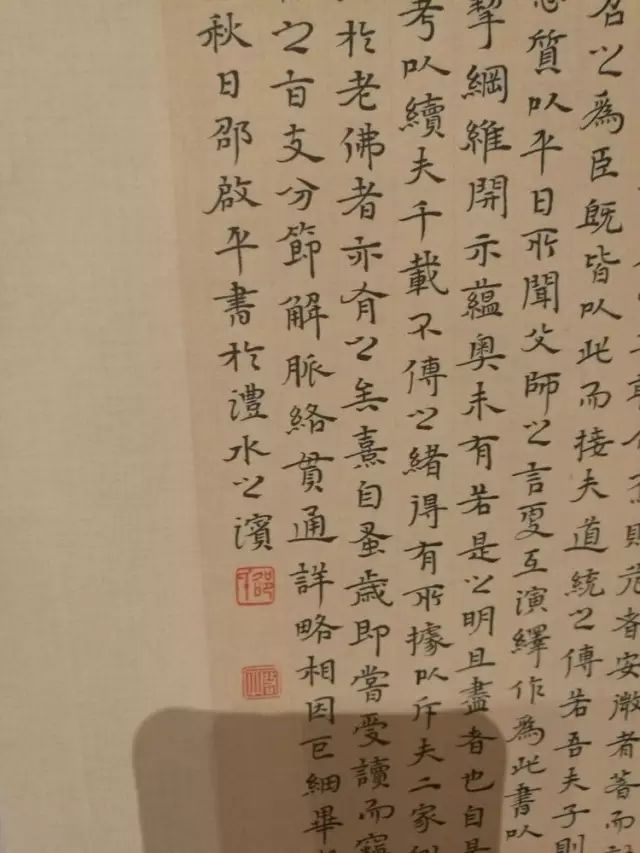 則危者安微者著而
召之為臣既皆以此而接夫道統之傳若吾夫子則
質以平日所聞父師之言更互演繹作為此書以
挈綱維開示蘊奧未有若是之明且盡者也自是
考以續夫千載不傳之緒得有所據以斥夫二家
於老佛者亦有之矣熹自蚤歲即嘗受讀而竊
之旨支分節解脈絡貫通詳略相因巨細畢
秋日邵啟平書於澧水之濱